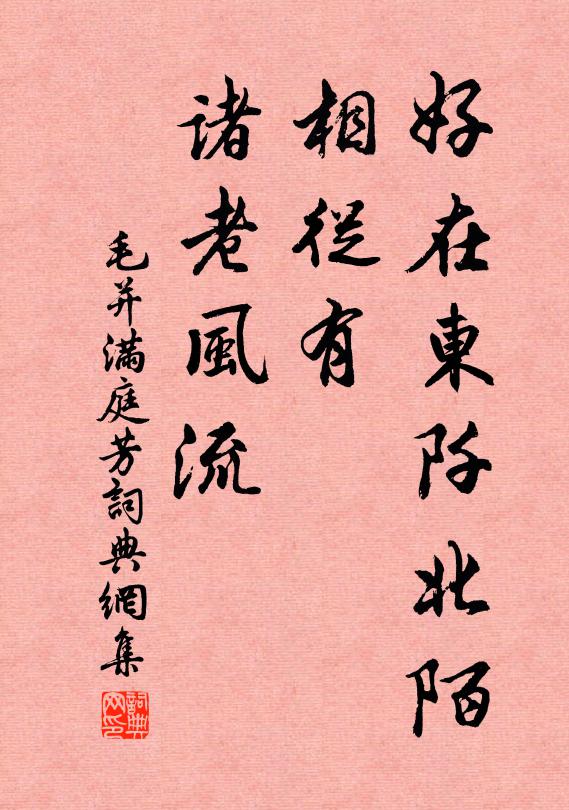 好在東阡北陌
相從有
諸老風流
毛并滿庭芳詞典網集
詞典网印